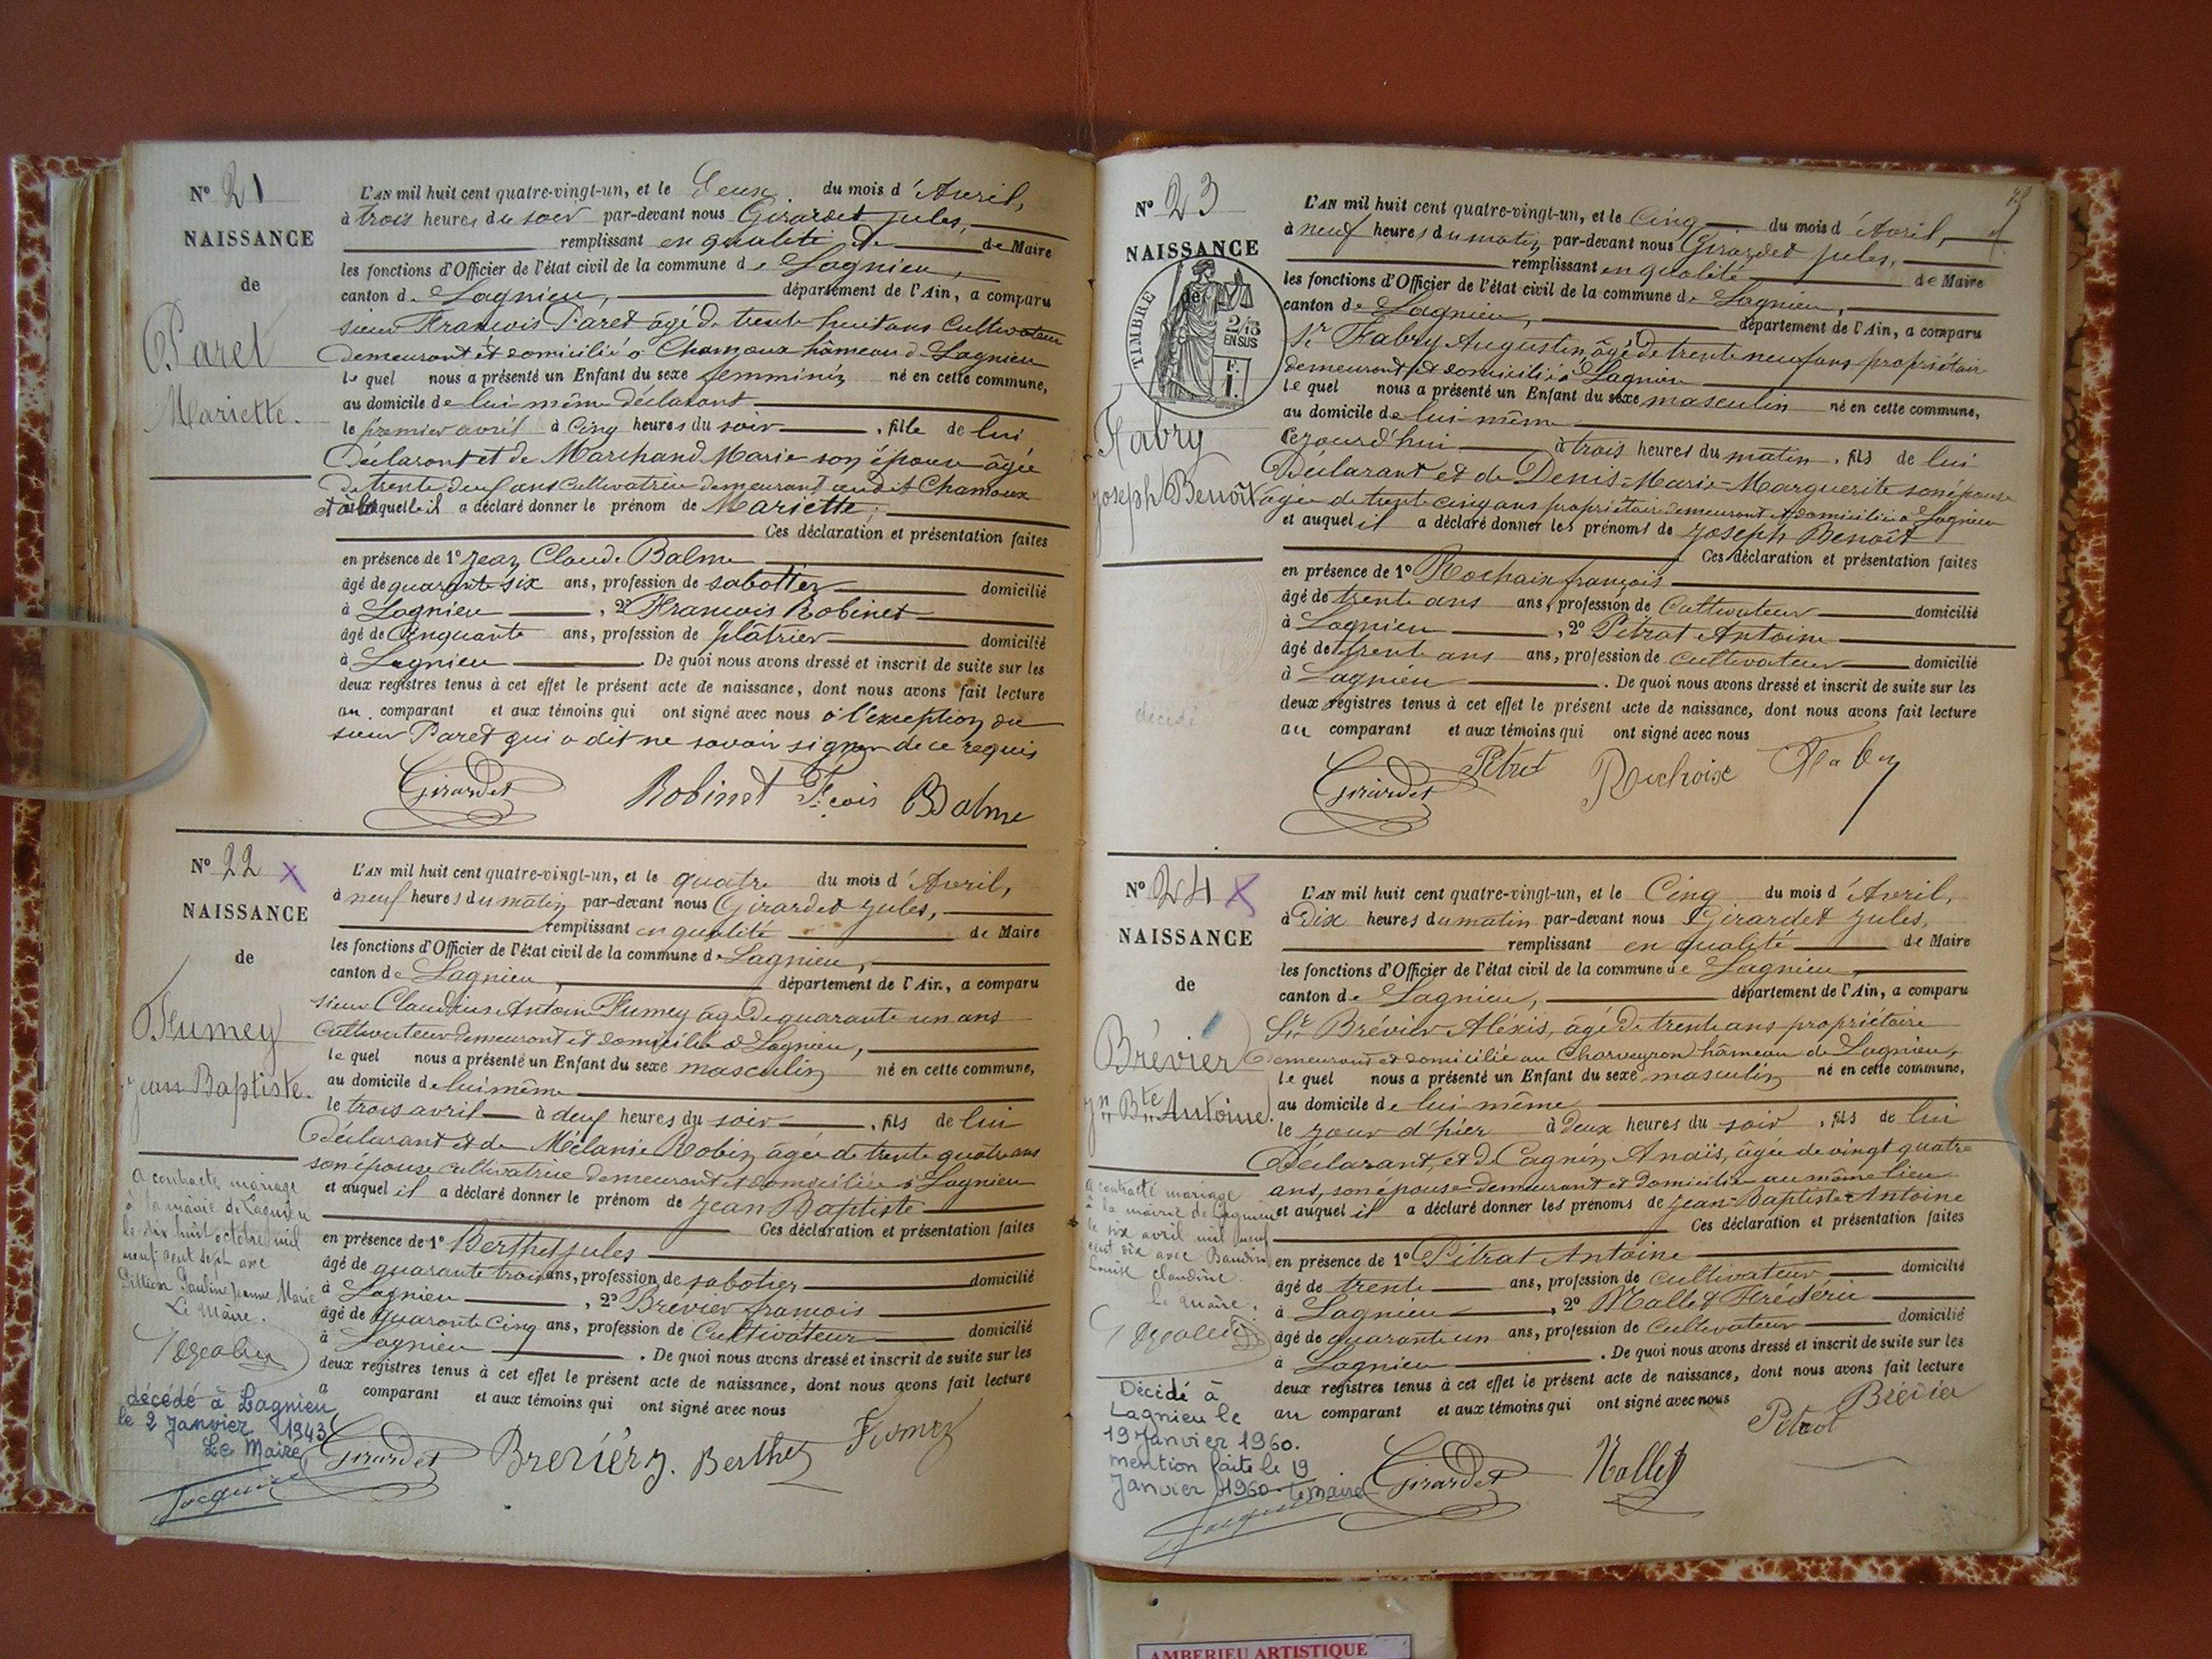 N° 21
NAISSANCE
de
Paret
Mariette.
L'AN mil huit cent quatre-vingt-un, et le Deux du mois d'Avril,
à trois heures du soir par-devant nous Girardet Jules,
remplissant en qualité de de Maire
les fonctions d'Officier de l'état civil de la commune de Lagnieu,
canton de Lagnieu, département de l'Ain, a comparu
sieur François Paret âgé de trente huit ans Cultivateur
demeurant et domicilié à Chamoux hâmeau de Lagnieu
lequel nous a présenté un Enfant du sexe femminin né en cette commune,
au domicile de lui même déclarant
le premier avril à Cinq heures du soir, fille de lui
Déclarant et de Marchand Marie son épouse âgée
de trente deux ans Cultivatrice demeurant audit Chamoux
et à laquelle il a déclaré donner le prénom de Mariette;
Ces déclaration et présentation faites
en présence de 1° Jean Claude Balme
âgé de quarante six ans, profession de sabottier domicilié
à Lagnieu, 2° François Robinet
âgé de Cinquante ans, profession de plâtrier domicilié
à Lagnieu. De quoi nous avons dressé et inscrit de suite sur les
deux registres tenus à cet effet le présent acte de naissance, dont nous avons fait lecture
au comparant et aux témoins qui ont signé avec nous à l'exception du
sieur Paret qui a dit ne savoir signer de ce requis
Girardet Robinet Fçois Balme
N° 22 X
NAISSANCE
de
Fumey
Jean Baptiste.
a contracté mariage
à la mairie de Lagnieu
le dix huit octobre mil
neuf cent sept avec
Pauline Jeanne Marie
Le Maire.
décédé à Lagnieu
le 2 Janvier 1943
Le Maire
L'AN mil huit cent quatre-vingt-un, et le quatre du mois d'Avril,
à neuf heures du matin par-devant nous Girardet Jules,
remplissant en qualité de Maire
les fonctions d'Officier de l'état civil de la commune de Lagnieu,
canton de Lagnieu, département de l'Ain, a comparu
sieur Claudius Antoine Fumey âgé de quarante un ans
cultivateur demeurant et domicilié à Lagnieu,
lequel nous a présenté un Enfant du sexe masculin né en cette commune,
au domicile de lui même
le trois avril à deux heures du soir, fils de lui
Déclarant et de Mélanie Robin âgée de trente quatre ans
son épouse cultivatrice demeurant et domiciliée à Lagnieu
et auquel il a déclaré donner le prénom de Jean Baptiste
Ces déclaration et présentation faites
en présence de 1° Berthet Jules
âgé de quarante trois ans, profession de sabotier domicilié
à Lagnieu, 2° Brévier françois
âgé de quarante cinq ans, profession de Cultivateur domicilié
à Lagnieu. De quoi nous avons dressé et inscrit de suite sur les
deux registres tenus à cet effet le présent acte de naissance, dont nous avons fait lecture
a comparant et aux témoins qui ont signé avec nous
Girardet Brevier J. Berthet Fumey
N° 23
NAISSANCE
de
TIMBRE
2/13
EN SUS
F.
1.
Fabry
Joseph Benoît
décédé
L'AN mil huit cent quatre-vingt-un, et le Cinq du mois d'Avril,
à neuf heures du matin par-devant nous Girardet Jules,
remplissant en qualité de Maire
les fonctions d'Officier de l'état civil de la commune de Lagnieu,
canton de Lagnieu, département de l'Ain, a comparu
Sr Fabry Augustin âgé de trente neuf ans propriétaire
demeurant et domicilié à Lagnieu
lequel nous a présenté un Enfant du sexe masculin né en cette commune,
au domicile de lui-même
Cejourd'hui à trois heures du matin, fils de lui
Déclarant et de Denis-Marie-Marguerite son épouse
âgée de trente cinq ans propriétaire demeurant et domiciliée à Lagnieu
et auquel il a déclaré donner les prénoms de Joseph Benoît
Ces déclaration et présentation faites
en présence de 1° Rochaix françois
âgé de trente ans ans, profession de Cultivateur domicilié
à Lagnieu, 2° Pitrat Antoine
âgé de trente ans ans, profession de cultivateur domicilié
à Lagnieu. De quoi nous avons dressé et inscrit de suite sur les
deux registres tenus à cet effet le présent acte de naissance, dont nous avons fait lecture
au comparant et aux témoins qui ont signé avec nous
Girardet Pitrat Rochaix Fabry
N° 24 X
NAISSANCE
de
Brévier
Jn Bte Antoine.
a contracté mariage
à la mairie de Lagnieu
le six avril mil neuf
cent six avec Baudin
Louise Claudine.
le maire.
Décédé à
Lagnieu le
19 Janvier 1960.
mention faite le 19
Janvier 1960. Le maire
L'AN mil huit cent quatre-vingt-un, et le Cinq du mois d'Avril,
à Dix heures du matin par-devant nous Girardet Jules,
remplissant en qualité de Maire
les fonctions d'Officier de l'état civil de la commune de Lagnieu,
canton de Lagnieu, département de l'Ain, a comparu
Sr Brévier Aléxis, âgé de trente ans propriétaire
demeurant et domicilié au Charveyron hâmeau de Lagnieu,
lequel nous a présenté un Enfant du sexe masculin né en cette commune,
au domicile de lui-même
le jour d'hier à Deux heures du soir, fils de lui
Déclarant, et de Cagnin Anaïs, âgée de vingt quatre
ans, son épouse demeurant et domiciliée au même lieu
et auquel il a déclaré donner les prénoms de Jean-Baptiste Antoine
Ces déclaration et présentation faites
en présence de 1° Pitrat Antoine
âgé de trente ans, profession de cultivateur domicilié
à Lagnieu, 2° Mollet Fréderic
âgé de quarante un ans, profession de Cultivateur domicilié
à Lagnieu. De quoi nous avons dressé et inscrit de suite sur les
deux registres tenus à cet effet le présent acte de naissance, dont nous avons fait lecture
au comparant et aux témoins qui ont signé avec nous
Pitrat Brévier
Girardet Mollet
AMBERIEU ARTISTIQUE